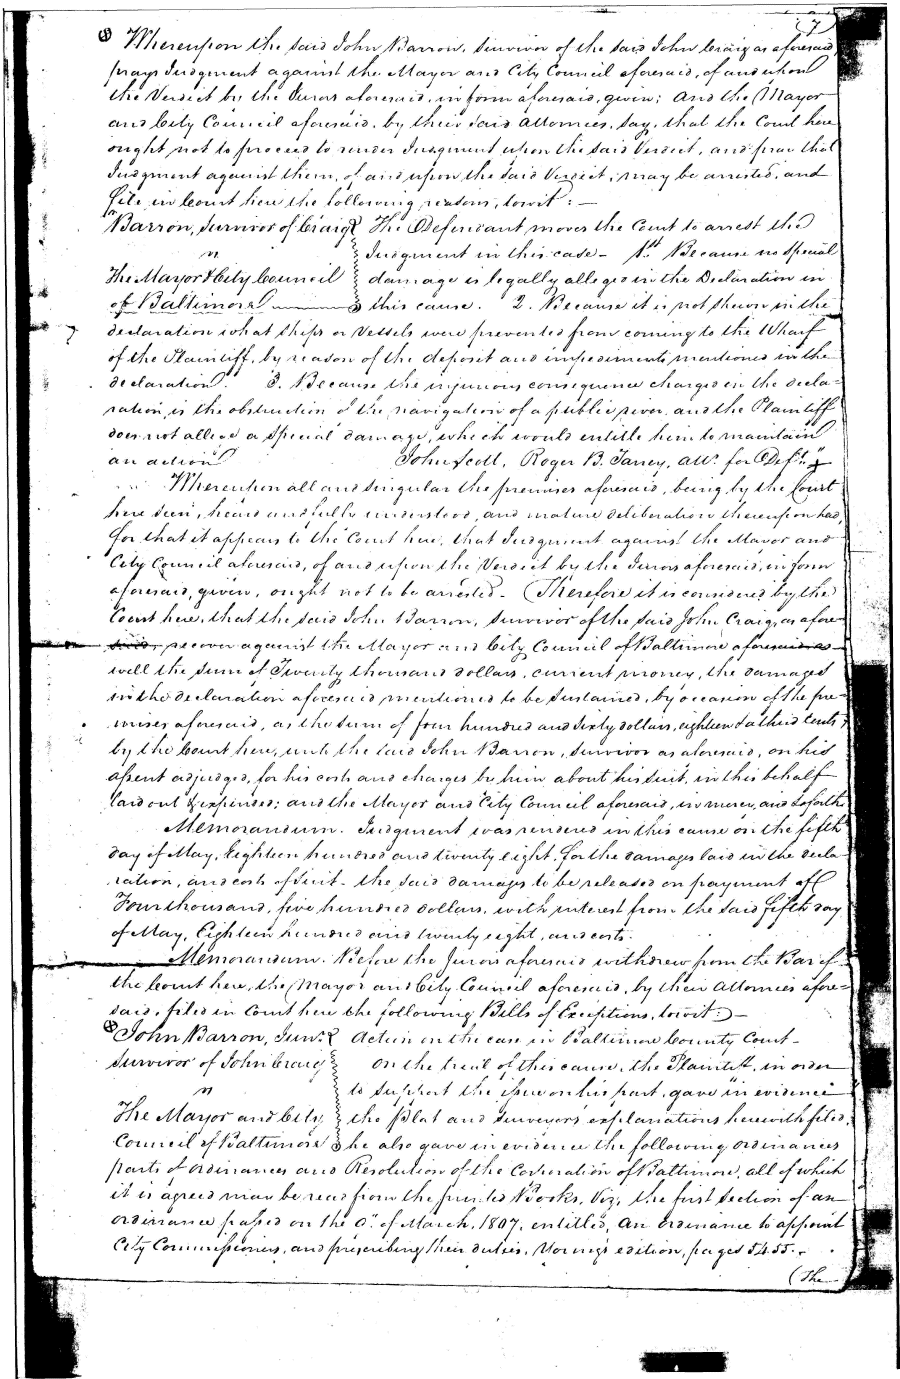 (7)
Whereupon the said John Barron, survivor of the said John Craig as aforesaid,
prays Judgment against the Mayor and City Council aforesaid, of and upon
the Verdict by the Jurors aforesaid, in form aforesaid, given; and the Mayor
and City Council aforesaid, by their said Attornies, say, that the Court here
ought not to proceed to render Judgment upon the said Verdict, and pray that
Judgment against them, of and upon the said Verdict, may be arrested, and
file in Court here the following reasons, towit: —
Barron, survivor of Craig
vs
The Mayor & City Council
of Baltimore
The Defendant moves the Court to arrest the
Judgment in this case — 1st. Because no special
damage is legally alleged in the Declaration in
this cause. 2. Because it is not shewn in the
declaration what ships or vessels were prevented from coming to the Wharf
of the Plaintiff, by reason of the deposit and impediments mentioned in the
declaration. 3. Because the injurious consequence charged in the decla=
ration, is the obstruction of the navigation of a public river and the Plaintiff
does not allege a special damage, which would entitle him to maintain
an action. John Scott, Roger B. Taney, atts. for Defts."
Whereupon all and singular the premises aforesaid, being by the Court
here seen, heard and fully understood, and mature deliberation thereupon had,
for that it appears to the Court here, that Judgment against the Mayor and
City Council aforesaid, of and upon the Verdict by the Jurors aforesaid, in form
aforesaid, given, ought not to be arrested — Therefore it is considered by the
Court here, that the said John Barron, survivor of the said John Craig, as afore=
said, recover against the Mayor and City Council of Baltimore aforesaid as
well the sum of Twenty thousand dollars, current money, the damages
in the declaration aforesaid mentioned to be sustained, by occasion of the pre=
mises aforesaid, as the sum of four hundred and sixty dollars, eighteen & a third Cents,
by the Court here, unto the said John Barron, survivor as aforesaid, on his
assent adjudged, for his costs and charges by him about his suit, in this behalf
laid out & expended; and the Mayor and City Council aforesaid, in mercy, and so forth
Memorandum. Judgment was rendered in this cause on the fifth
day of May, Eighteen hundred and twenty eight, for the damages laid in the decla=
ration, and costs of suit — the said damages to be released on payment of
Four thousand, five hundred dollars, with interest from the said fifth day
of May, Eighteen hundred and twenty eight, and costs.
Memorandum. Before the Jurors aforesaid withdrew from the Bar of
the Court here, the Mayor and City Council aforesaid, by their Attornies afore=
said, filed in Court here the following Bills of Exceptions, towit: —
John Barron, Junr.
survivor of John Craig
vs
The Mayor and City
Council of Baltimore
Action on the case in Baltimore County Court —
On the trial of this cause, the Plaintiff, in order
to support the issue on his part, gave in evidence
the Plat and surveyor's explanations herewith filed,
he also gave in evidence the following ordinances
parts of ordinances and Resolution of the Corporation of Baltimore, all of which
it is agreed may be read from the printed Books, Viz, the first section of an
ordinance passed on the 9" of March, 1807, entitled, an ordinance to appoint
City Commissioners, and prescribing their duties, Young's edition, pages 54.55.
(The